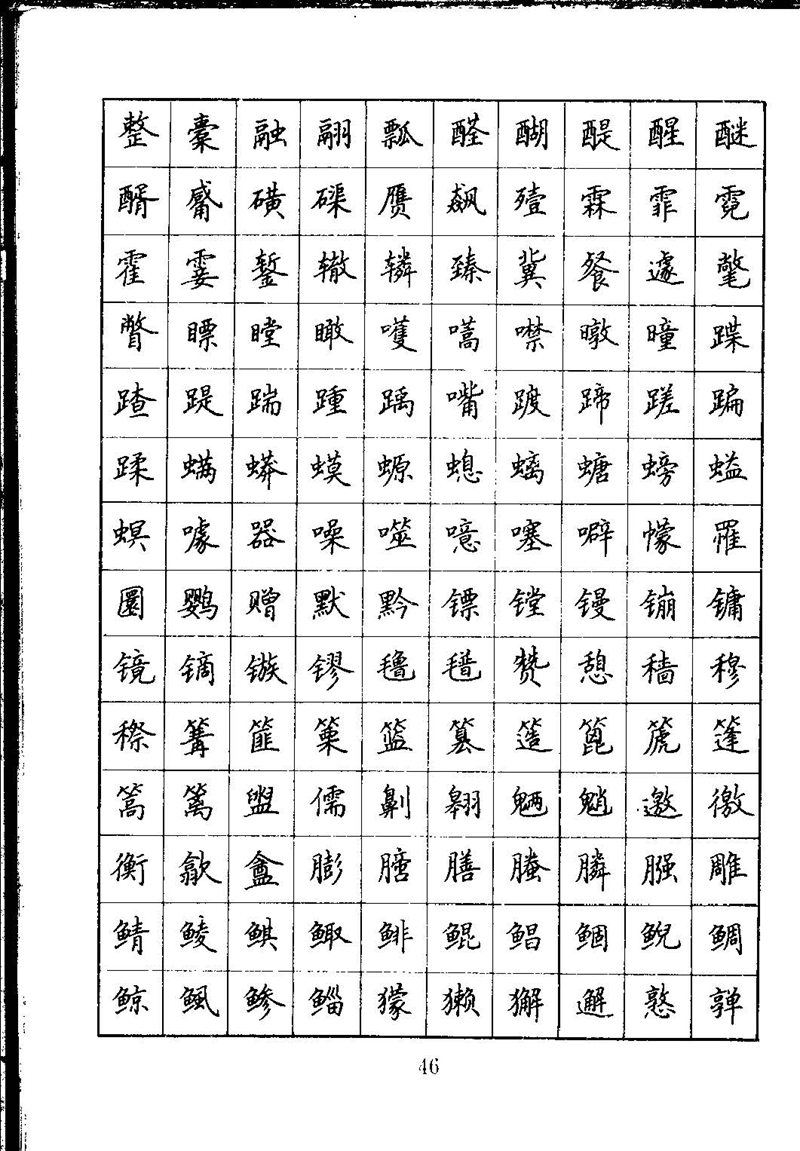 整 橐 融 翮 瓢 醛 醐 醍 醒 醚
醑 觱 磺 磲 赝 飙 殪 霖 霏 霓
霍 霎 錾 辙 辚 臻 冀 餐 遽 氅
瞥 瞟 瞠 瞰 嚄 嚆 噤 暾 曈 蹀
蹅 踶 踹 踵 踽 嘴 踱 蹄 蹉 蹁
蹂 螨 蟒 蟆 螈 螅 螭 螗 螃 螠
螟 噱 器 噪 噬 噫 噻 噼 幪 罹
圜 鹦 赠 默 黔 镖 镗 镘 镚 镛
镜 镝 镞 镠 氇 氆 赞 憩 穑 穆
穄 篝 篚 篥 篮 篡 簉 篦 篪 篷
篙 篱 盥 儒 劓 翱 魉 魈 邀 徼
衡 歙 盦 膨 膪 膳 螣 膦 膙 雕
鲭 鲮 鲯 鲰 鲱 鲲 鲳 鲴 鲵 鲷
鲸 鲺 鲹 鲻 獴 獭 獬 邂 憝 亸